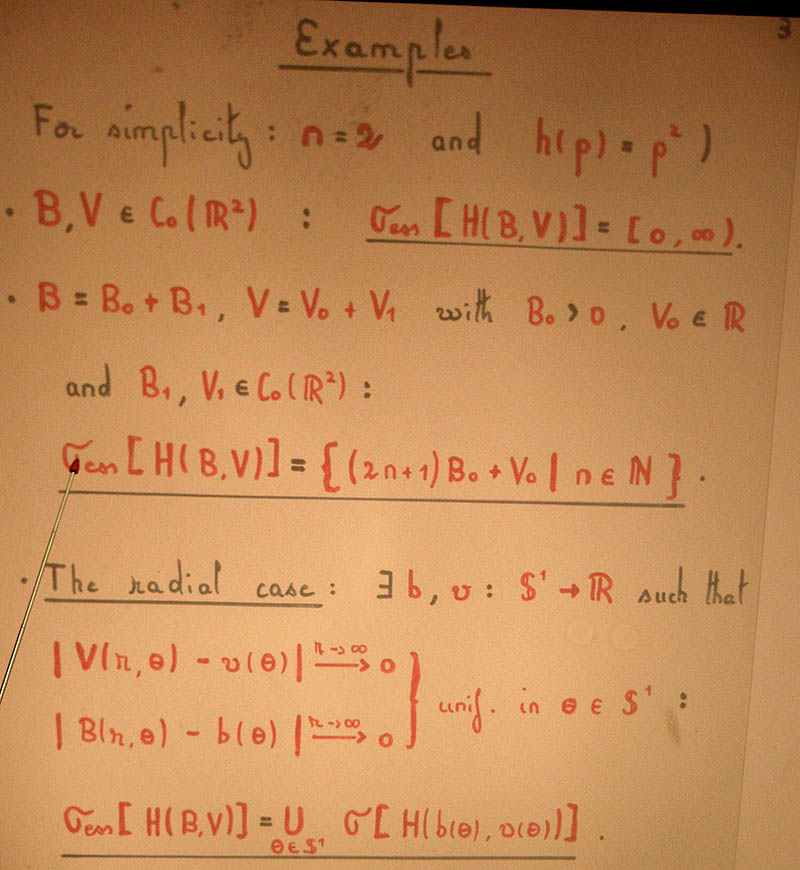 3
Examples
For simplicity : n = 2 and h(p) = p² )
• B, V ∈ C₀(ℝ²) : σess [ H(B,V) ] = [0, ∞).
• B = B₀ + B₁, V = V₀ + V₁ with B₀ > 0, V₀ ∈ ℝ
and B₁, V₁ ∈ C₀(ℝ²) :
σess [ H(B,V) ] = { (2n+1) B₀ + V₀ | n ∈ ℕ } .
• The radial case : ∃ b, v : S¹ → ℝ such that
| V(r,θ) − v(θ) | r→∞⟶ 0
unif. in θ ∈ S¹ :
| B(r,θ) − b(θ) | r→∞⟶ 0
σess [ H(B,V) ] = ∪θ∈S¹ σ[ H(b(θ), v(θ)) ] .